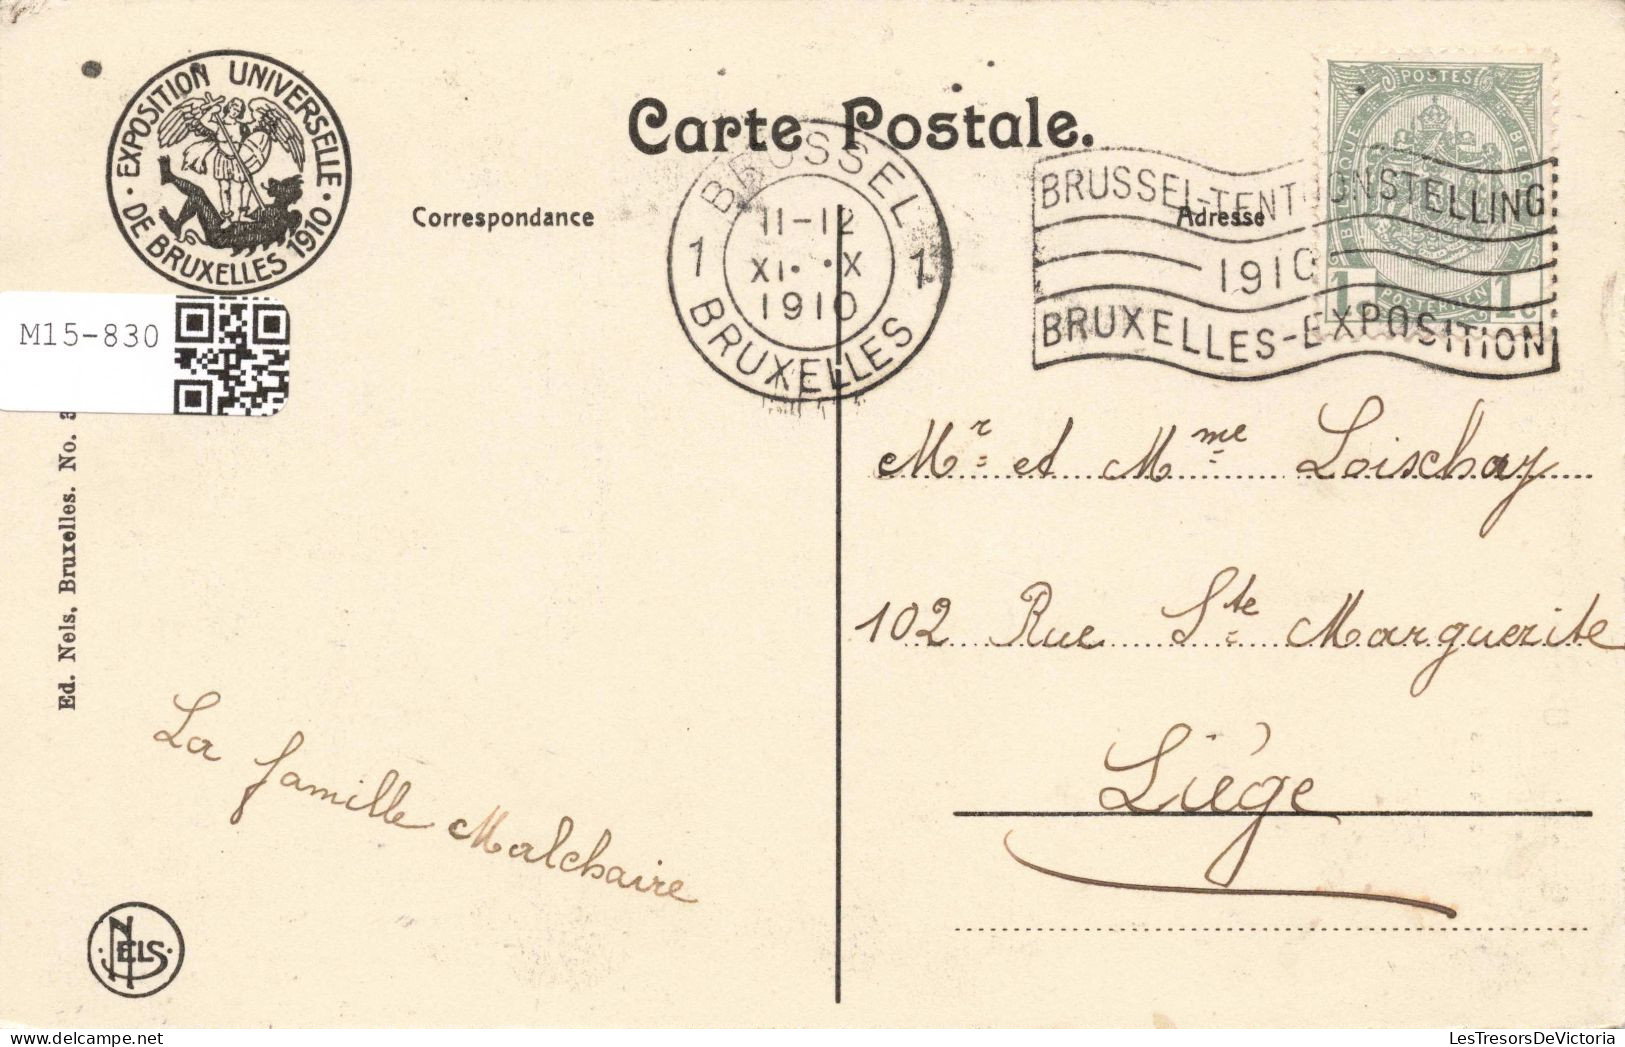 EXPOSITION UNIVERSELLE
DE BRUXELLES 1910
Carte Postale.
Correspondance
Adresse
BRUSSEL
1 11-12 1
XI • •X
1910
BRUXELLES
BRUSSEL-TENTOONSTELLING
1910
BRUXELLES-EXPOSITION
POSTES
BELGIQUE
1c 1c
M15-830
Ed. Nels, Bruxelles. No.
Mr et Mme Loischay
102 Rue Ste Marguerite
Liége
La famille Malchaire
NELS
LesTresorsDeVictoria